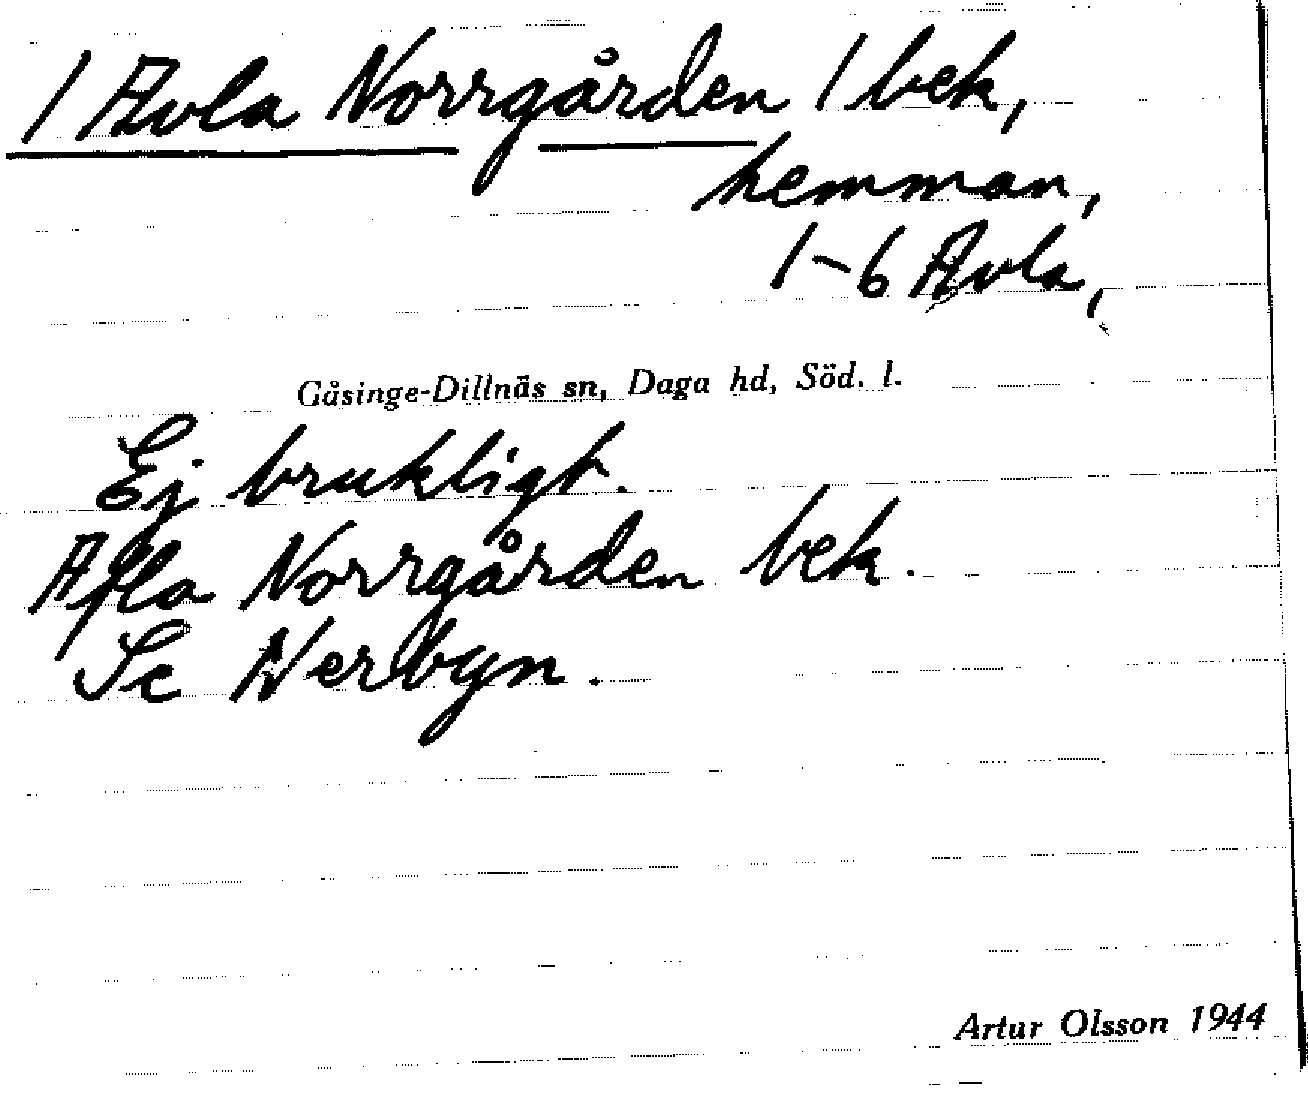 / Avla Norrgården / bek,
hemman,
1-6 Avla,
Gåsinge-Dillnäs sn, Daga hd, Söd. l.
Ej brukligt.
Afla Norrgården bek.
Se Nerbyn.
Artur Olsson 1944